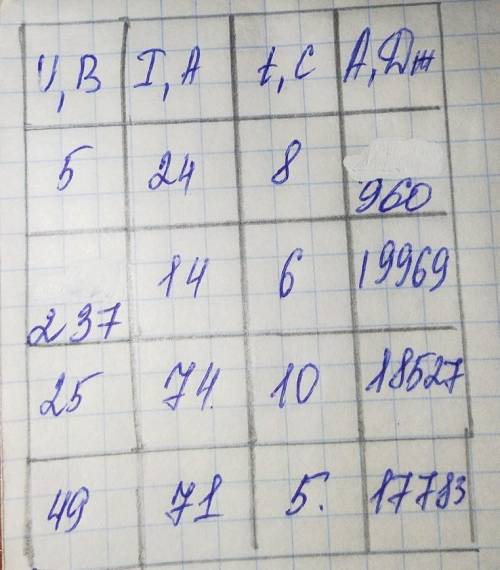 U, В I, А t, С А, Дж
5 24 8 960
237 14 6 19969
25 74 10 18527
49 71 5. 17783